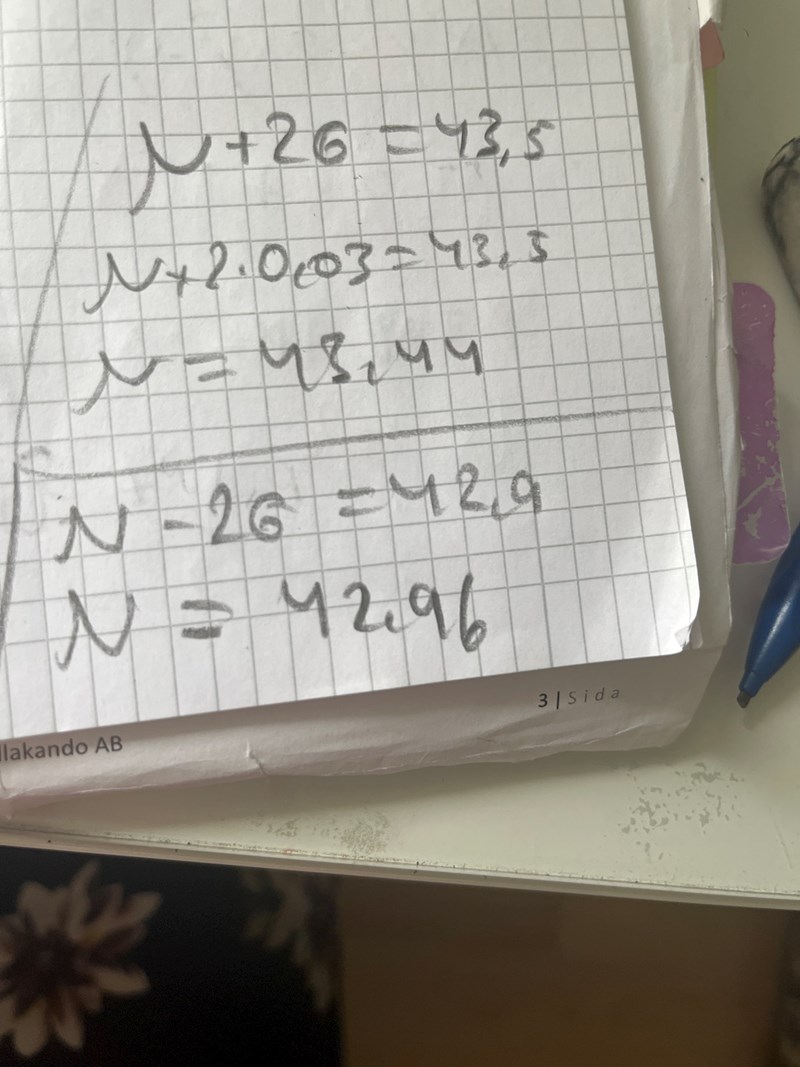 μ+2σ=43,5
μ+2·0,03=43,5
μ=43,44
μ-2σ=42,9
μ=42,96
3 | Sida
llakando AB